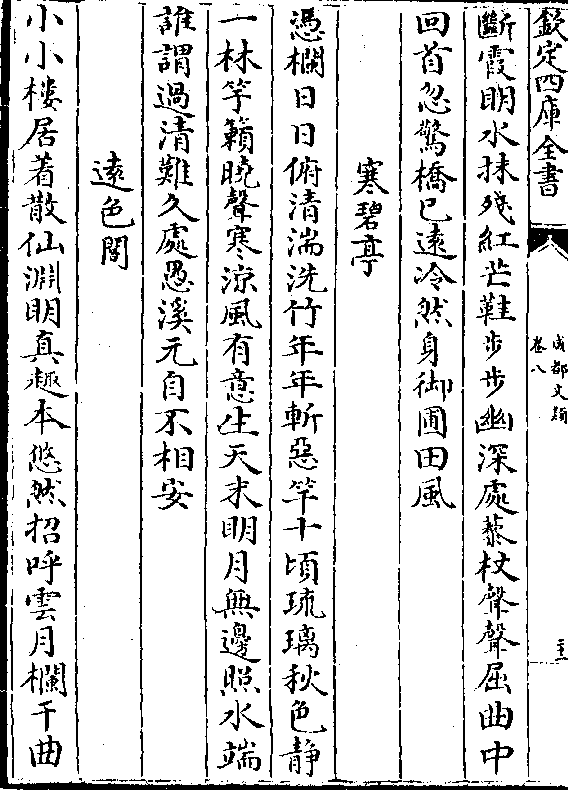 欽定四庫全書
成都文類
卷八
斷霞明水抹殘紅芒鞋步步幽深處藜杖聲聲屈曲中
回首忽驚橋已遠冷然身御圃田風
寒碧亭
憑欄日日俯清湍洗竹年年斬惡竿十頃琉璃秋色静
一林竽籟曉聲寒凉風有意生天末明月無邊照水端
誰謂過清難久處愚溪元自不相安
逺色閣
小小樓居着散仙淵明真趣本悠然招呼雲月欄干曲